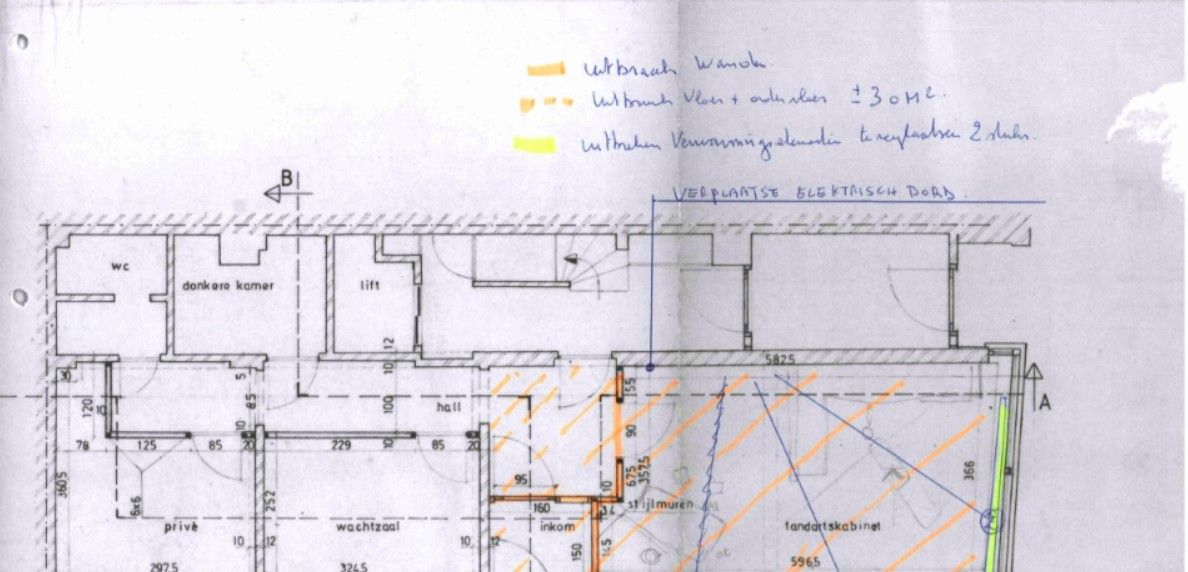 uitbraak wanden.
uitbraak vloer + ondervloer ± 30 M².
uitbreken verwarmingselementen te verplaatsen 2 stuks.
VERPLAATSE ELEKTRISCH BORD.
B
wc
donkere kamer
lift
12
10
5825
30
5
55
A
120
10
85
100
hall
90
10
78
125
85
20
229
10
85
20
95
675
3575
366
3605
6x6
252
10
160
34
stijlmuren
privé
wachtzaal
inkom
tandartskabinet
10
12
10
12
150
145
2975
3245
5965